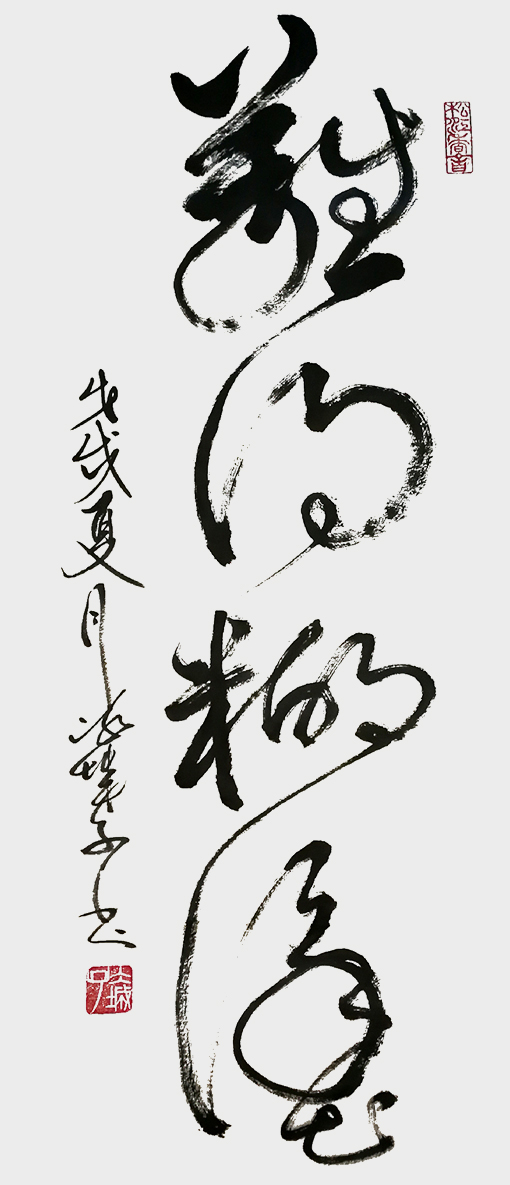 難得糊塗
戊戌夏月
子書